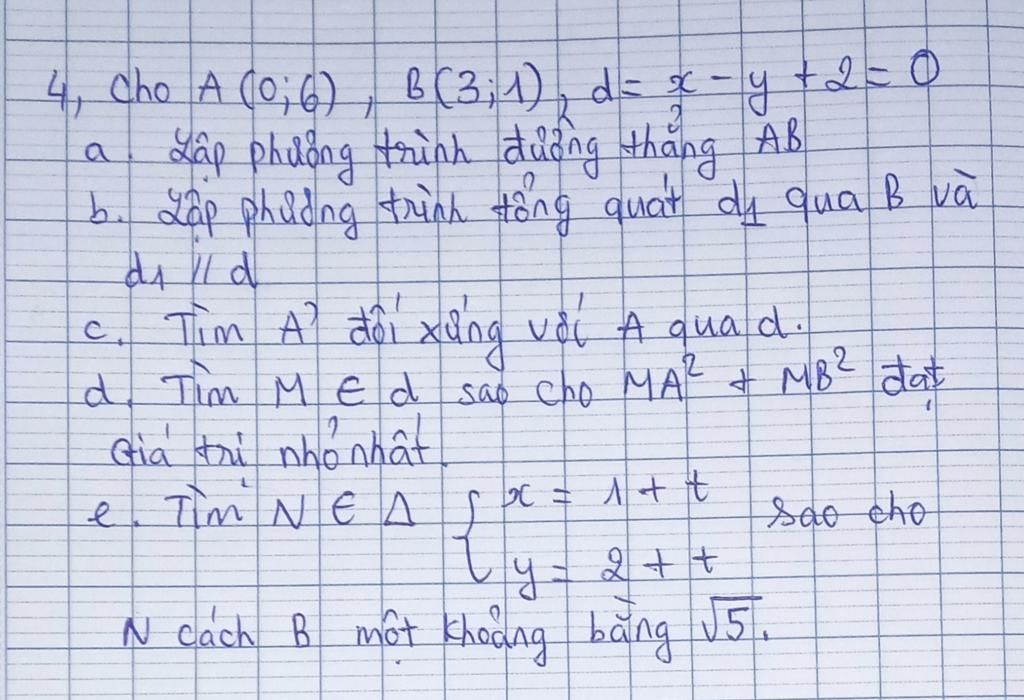 4, Cho A (0;6), B(3;1), d = x - y + 2 = 0
a. Lập phương trình đường thẳng AB
b. Lập phương trình tổng quát d1 qua B và
d1 // d
c. Tìm A' đối xứng với A qua d.
d. Tìm M ∈ d sao cho MA² + MB² đạt
Giá trị nhỏ nhất.
e. Tìm N ∈ Δ { x = 1 + t sao cho
y = 2 + t
N cách B một khoảng bằng √5.